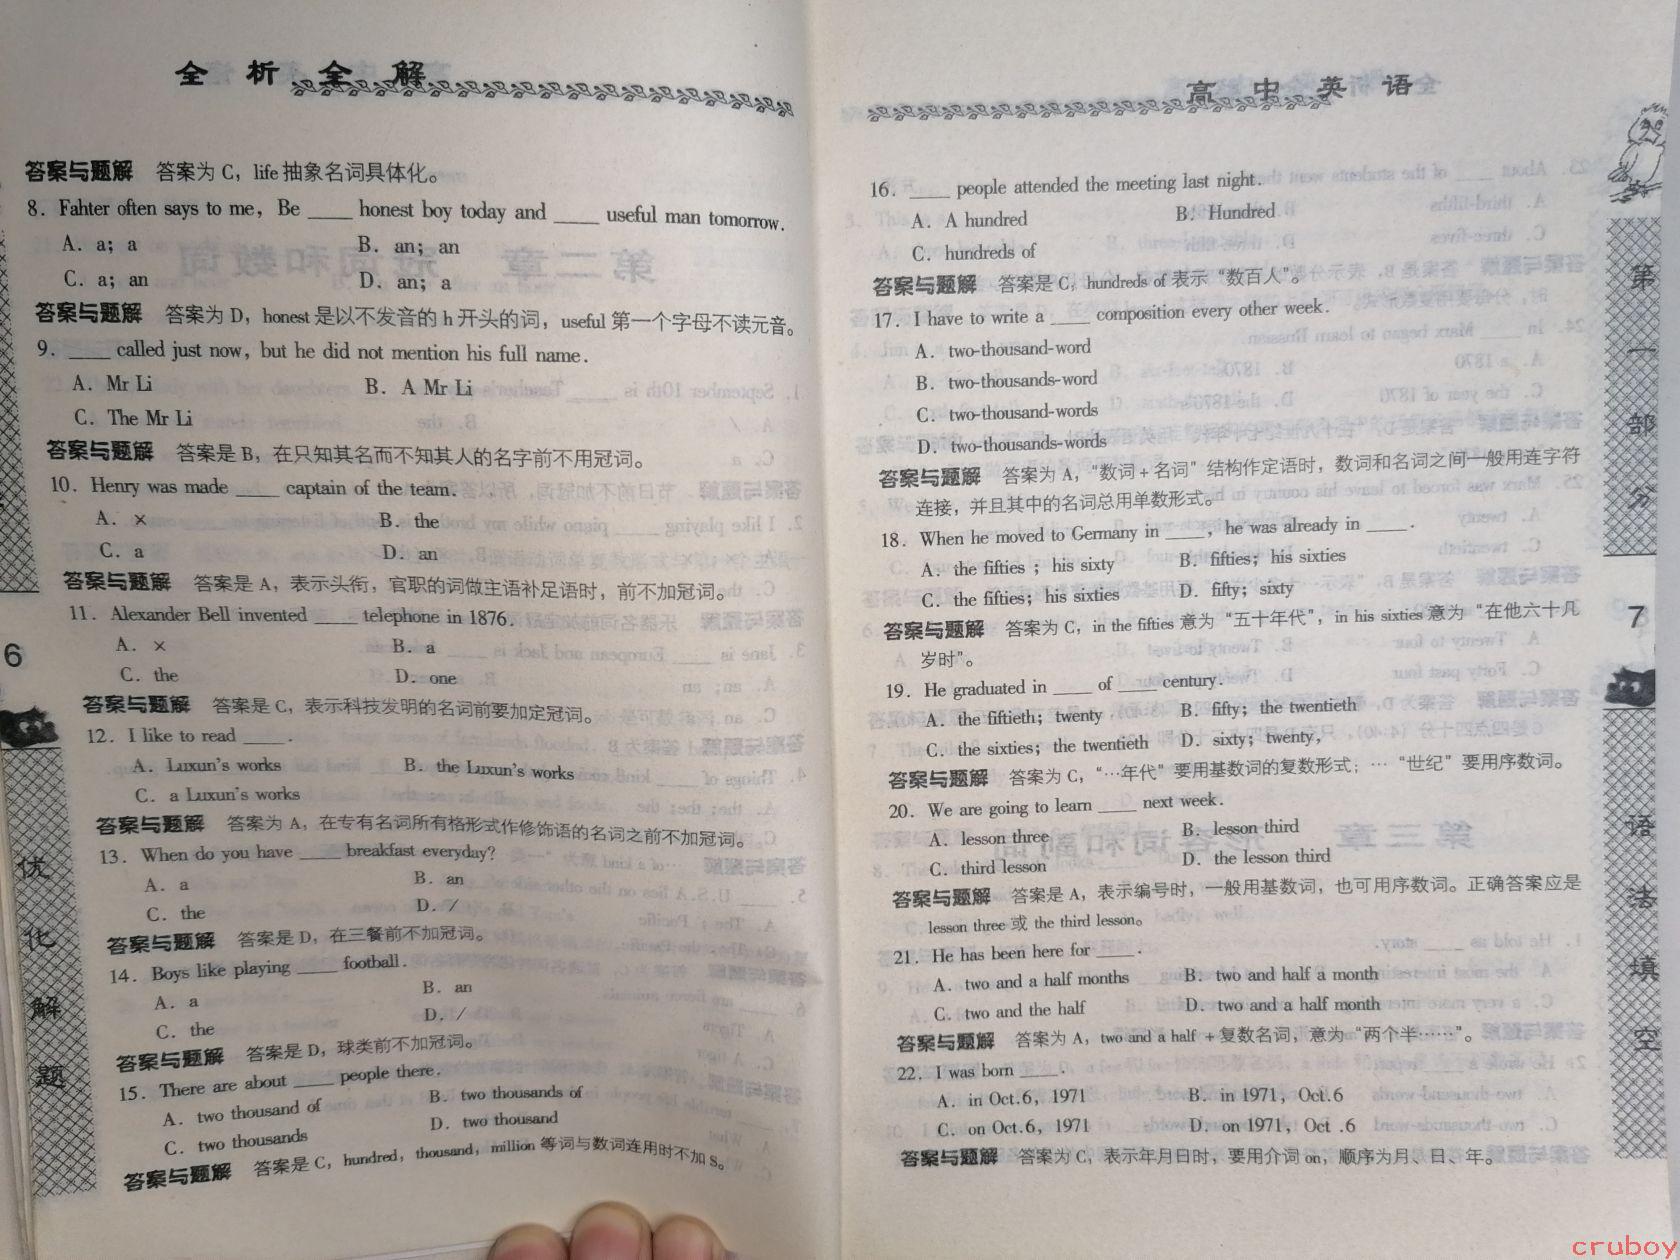 全析全解
答案与题解 答案为 C，life 抽象名词具体化。
8. Fahter often says to me，Be ____ honest boy today and ____ useful man tomorrow.
A. a；a B. an；an
C. a；an D. an；a
答案与题解 答案为 D，honest 是以不发音的 h 开头的词，useful 第一个字母不读元音。
9. ____ called just now，but he did not mention his full name.
A. Mr Li B. A Mr Li
C. The Mr Li
答案与题解 答案是 B，在只知其名而不知其人的名字前不用冠词。
10. Henry was made ____ captain of the team.
A. × B. the
C. a D. an
答案与题解 答案是 A，表示头衔，官职的词做主语补足语时，前不加冠词。
11. Alexander Bell invented ____ telephone in 1876.
A. × B. a
C. the D. one
答案与题解 答案是 C，表示科技发明的名词前要加定冠词。
12. I like to read ____.
A. Luxun's works B. the Luxun's works
C. a Luxun's works
答案与题解 答案为 A，在专有名词所有格形式作修饰语的名词之前不加冠词。
13. When do you have ____ breakfast everyday?
A. a B. an
C. the D. /
答案与题解 答案是 D，在三餐前不加冠词。
14. Boys like playing ____ football.
A. a B. an
C. the D. /
答案与题解 答案是 D，球类前不加冠词。
15. There are about ____ people there.
A. two thousand of B. two thousands of
C. two thousands D. two thousand
答案与题解 答案是 C，hundred，thousand，million 等词与数词连用时不加 S。
6
优化解题
高中英语
16. ____ people attended the meeting last night.
A. A hundred B. Hundred
C. hundreds of
答案与题解 答案是 C，hundreds of 表示“数百人”。
17. I have to write a ____ composition every other week.
A. two-thousand-word
B. two-thousands-word
C. two-thousand-words
D. two-thousands-words
答案与题解 答案为 A，“数词+名词”结构作定语时，数词和名词之间一般用连字符
连接，并且其中的名词总用单数形式。
18. When he moved to Germany in ____，he was already in ____.
A. the fifties ；his sixty B. fifties；his sixties
C. the fifties；his sixties D. fifty；sixty
答案与题解 答案为 C，in the fifties 意为“五十年代”，in his sixties 意为“在他六十几
岁时”。
19. He graduated in ____ of ____ century.
A. the fiftieth；twenty B. fifty；the twentieth
C. the sixties；the twentieth D. sixty；twenty，
答案与题解 答案为 C，“…年代”要用基数词的复数形式；…“世纪”要用序数词。
20. We are going to learn ____ next week.
A. lesson three B. lesson third
C. third lesson D. the lesson third
答案与题解 答案是 A，表示编号时，一般用基数词，也可用序数词。正确答案应是
lesson three 或 the third lesson。
21. He has been here for ____.
A. two and a half months B. two and half a month
C. two and the half D. two and a half month
答案与题解 答案为 A，two and a half +复数名词，意为“两个半……”。
22. I was born ____.
A. in Oct.6，1971 B. in 1971，Oct.6
C. on Oct.6，1971 D. on 1971，Oct .6
答案与题解 答案为 C，表示年月日时，要用介词 on，顺序为月、日、年。
第一部分
7
语法填空
cruboy